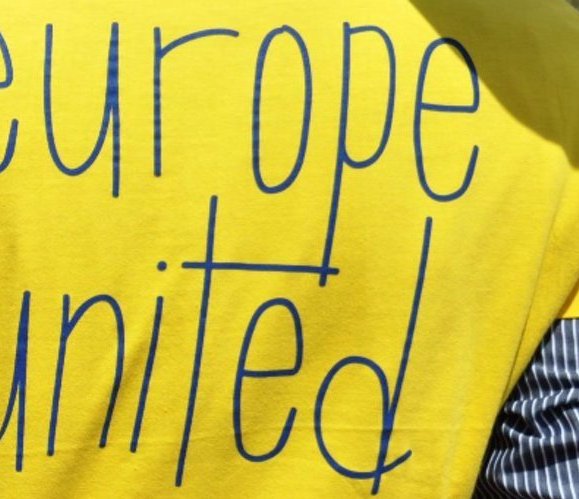 europe
united